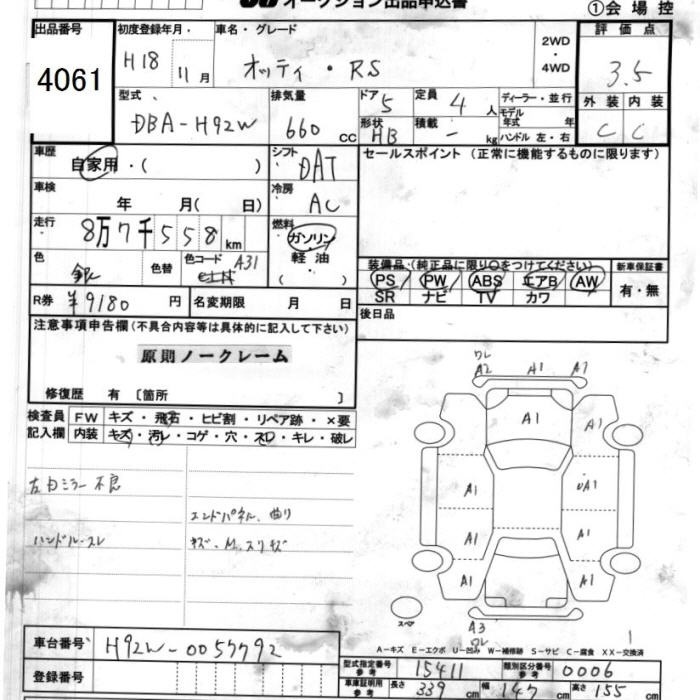 オークション出品申込書
①会場控
出品番号 初度登録年月 車名・グレード 2WD 4WD 評価点
4061 H18 11月 オッティ・RS 3.5
型式 排気量 ドア 定員 ディーラー・並行 外装 内装
DBA-H92W 660 cc 5 4人 モデル年式 年 C C
形状 HB 積載 - kg ハンドル 左・右
車歴 自家用・( ) シフト DAT セールスポイント (正常に機能するものに限ります)
車検 年 月( 日) 冷房 AC
走行 8万7千558km 燃料 ガソリン 軽油 ( )
色 銀 色替 色コード A31
装備品 (純正品に限り○をつけてください) 新車保証書
PS PW ABS エアB AW 有・無
SR ナビ TV カワ
R券 ¥9180円 名変期限 月 日 後日品
注意事項申告欄(不具合内容等は具体的に記入して下さい)
原則ノークレーム
修復歴 有 〔箇所 〕
検査員 FW キズ・飛石・ヒビ割・リペア跡・×要
記入欄 内装 キズ・汚レ・コゲ・穴・スレ・キレ・破レ
左カミラー不良
エンドパネル、曲り
ハンドル・スレ
キズ、M、スリキズ
ワレ
A2 A1 A1
A1 A1 A1
A1 UA1
A1 A1
A1 A1
スペア
A3
ワレ
1
A-キズ E-エクボ U-凹み W-補修跡 S-サビ C-腐食 XX-交換済
車台番号 H92W-0057792
型式指定番号 参考 15411 類別区分番号 参考 0006
登録番号
車庫証明用 参考 長さ 339 cm 幅 147 cm 高さ 155 cm